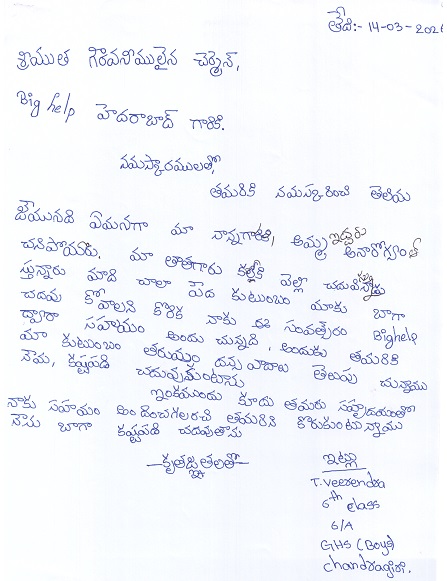 తేది:- 14-03-202
శ్రీయుత గౌరవనీయులైన చైర్మెన్,
Big help హైదరాబాద్ గారికి.
నమస్కారములతో,
తమరికి నమస్కరించి తెలియ
జేయునది ఏమనగా మా నాన్నగారికి, అమ్మ ఇద్దరు అనారోగ్యంతో
చనిపోయారు. మా తాతగారు కల్లోకి వెళ్లి చదువి
స్తున్నారు మాది చాలా పేద కుటుంబం మాకు బాగా
చదువు కోవాలని కోరిక నాకు ఈ సంవత్సరం Bighelp
ద్వారా సహాయం అందు చున్నది, అందుకు తమరికి
మా కుటుంబం తరుపున ధన్యవాదాలు తెలుపు చున్నాము
నేను, కష్టపడి చదువుకుంటాను
ఇంకముందు కూడు తమరు సహృదయంతో
నాకు సహాయం అందించగలరని తమరిని కోరుకుంటున్నాము
నేను బాగా కష్టపడి చదువుతాను
—కృతజ్ఞతలతో—
ఇట్లు
T. Veerendra
6th class
6/A
GHS (Boys)
Chandragiri.